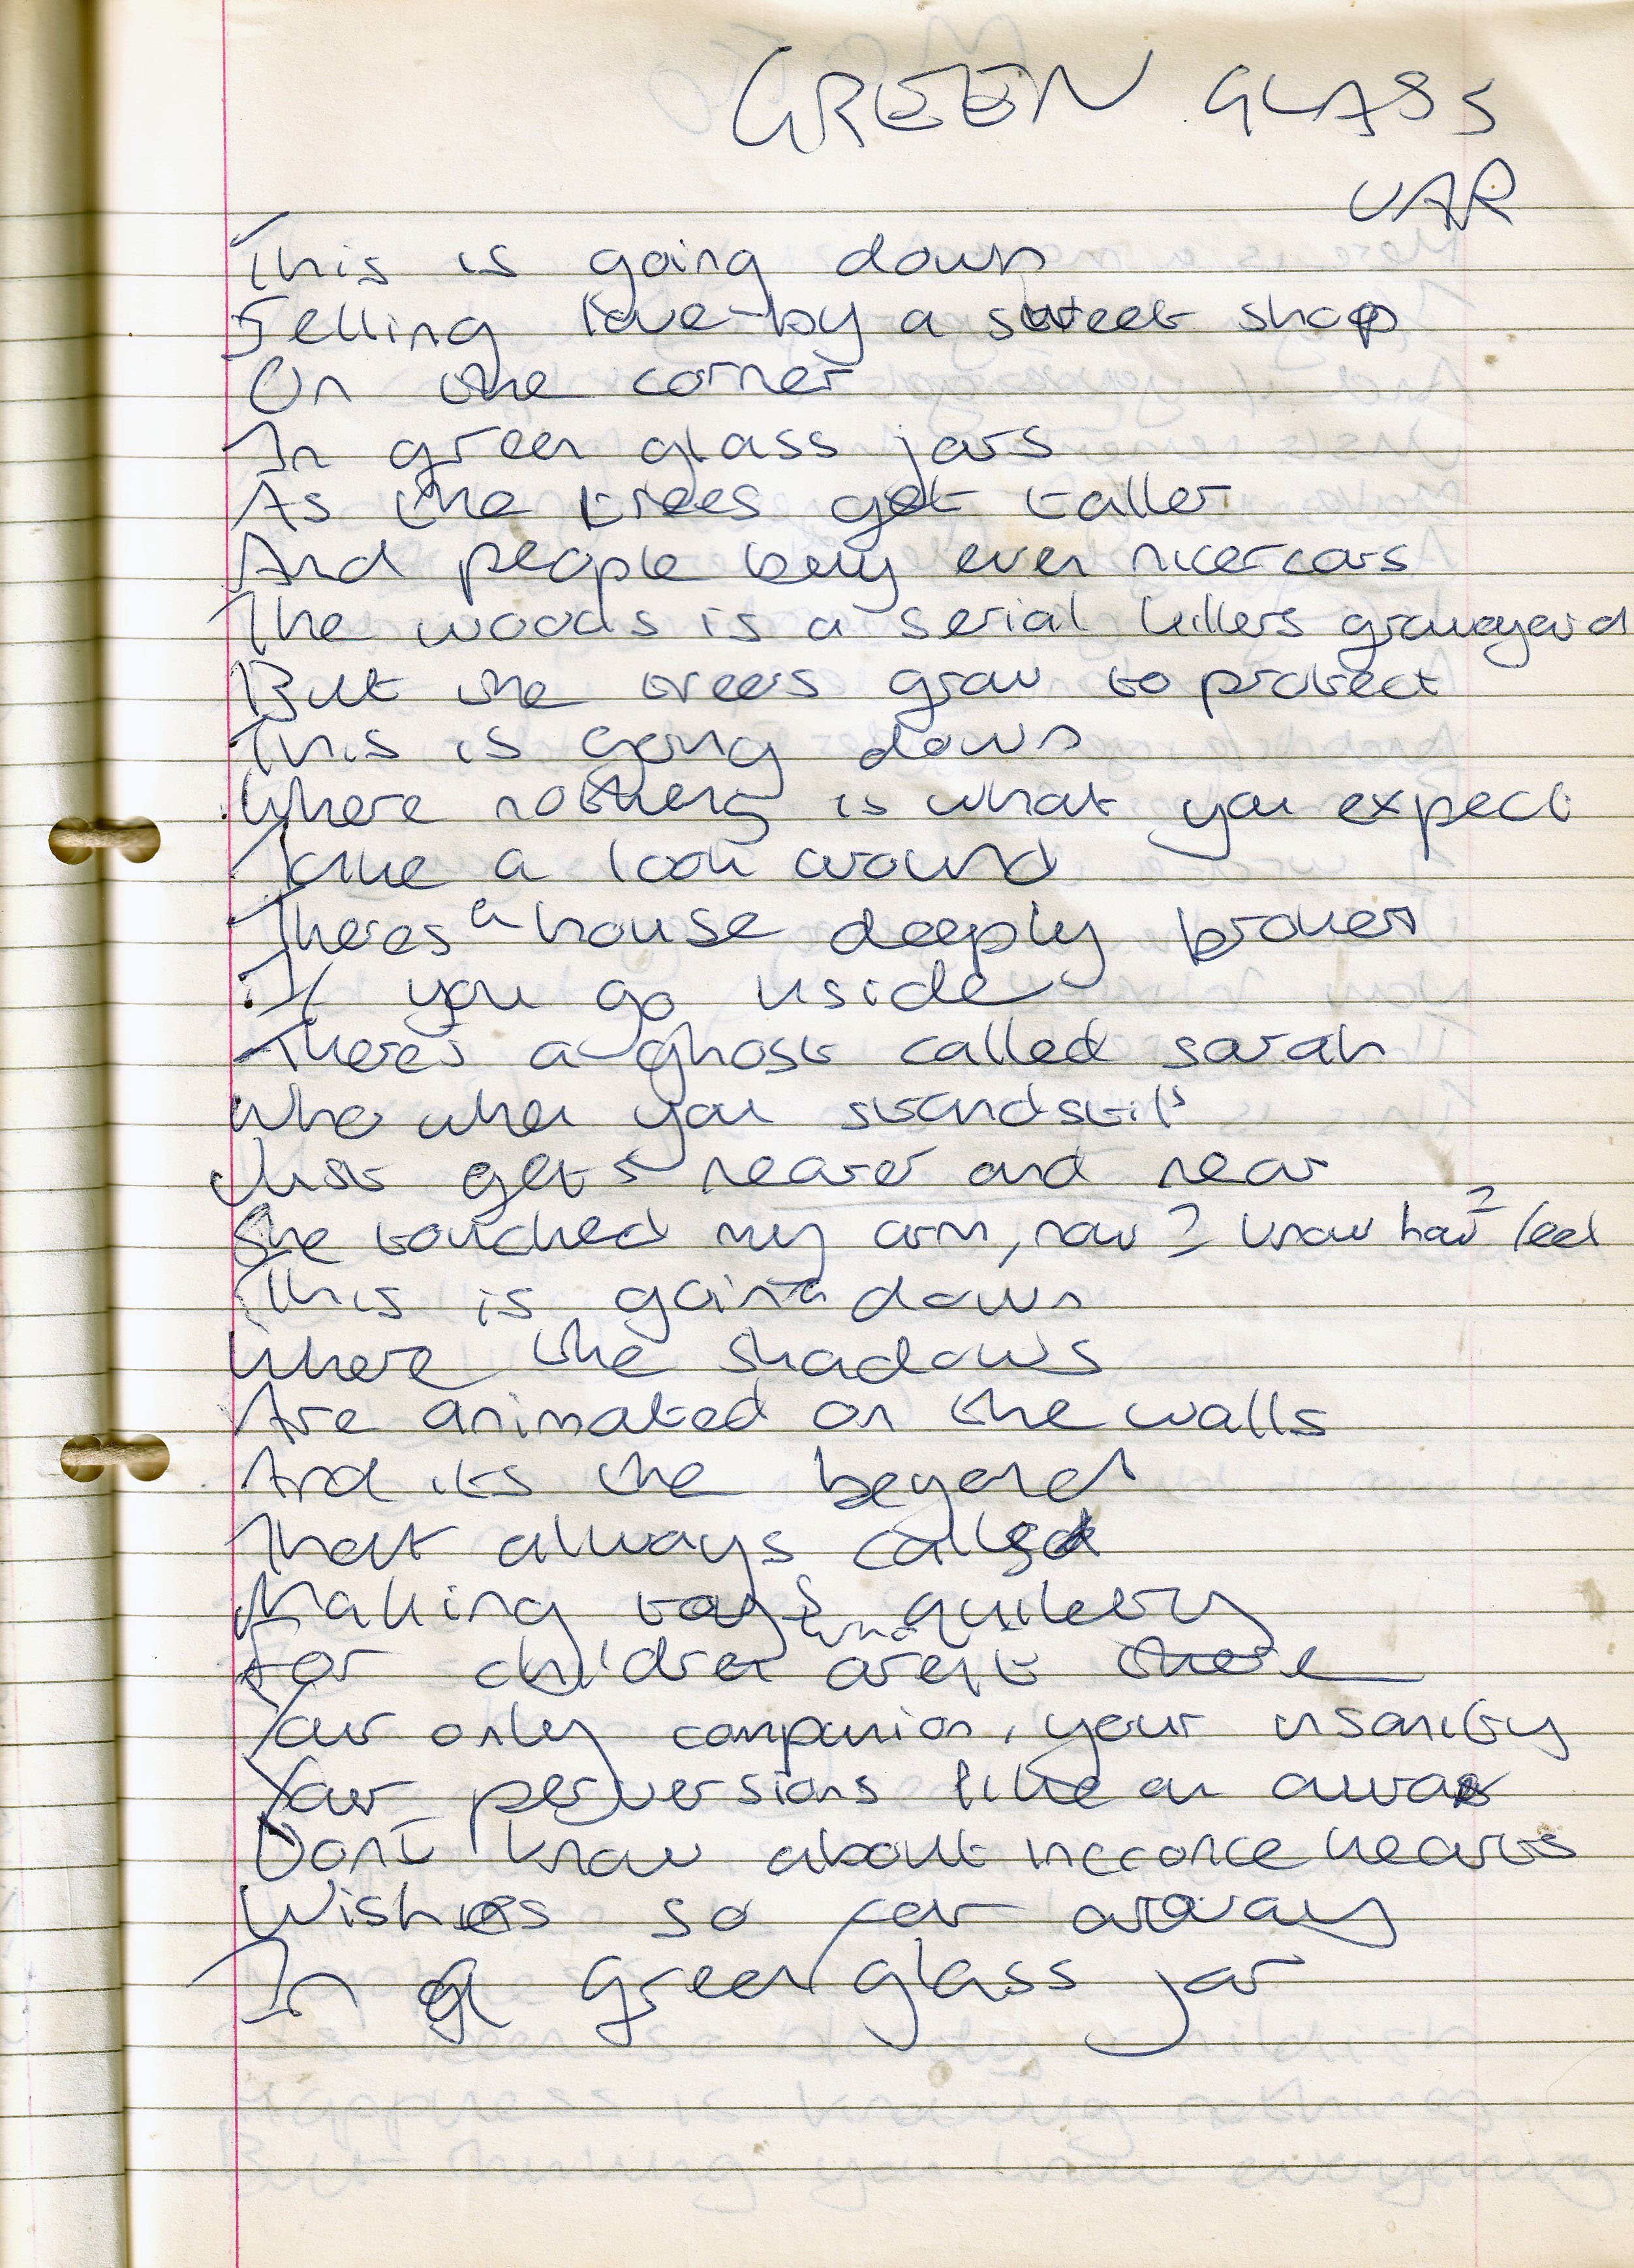 GREEN GLASS
JAR
This is going down
Selling love by a sweet shop
On the corner
In green glass jars
As the trees get taller
And people buy ever nicer cars
The woods is a serial killers graveyard
But the trees grow to protect
This is going down
Where nothing is what you expect
Take a look around
Theres a house deeply broken
If you go inside
Theres a ghost called sarah
Who when you stand still
Just gets nearer and near
She touched my arm, now I know how I feel
This is going down
Where the shadows
Are animated on the walls
And its the beyond
That always calls
Making toys quietly
For children who arent there
Your only companion, your insanity
Your perversions like an
Dont know about hearts
Wishes so far away
In a green glass jar